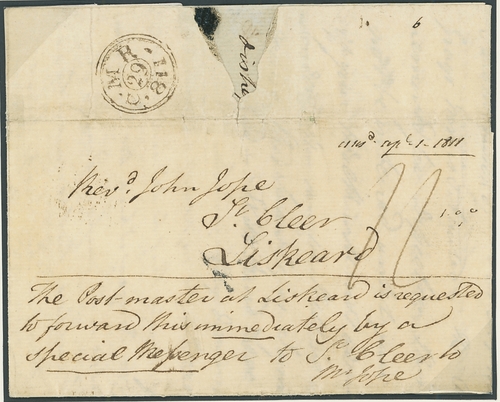 6
MR 29 811
Liske
answd. apl. 1 - 1811
Revd. John Jope
St. Cleer
Liskeard
11
The Post-master at Liskeard is requested
to forward this immediately by a
special Messenger to St. Cleer to
Mr Jope